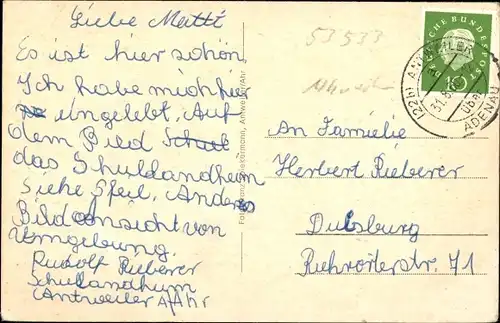 Liebe Mutti
Es ist hier schön
Ich habe mich hier
eingelebt, Auf
dem Bied Schul
das Schullandheim
Siehe Pfeil, Anderes
Bild ansicht von
Umgebung.
Rudolf Rieberer
Schullandhum
(Antweiler A/Ahr
53533
DEUTSCHE BUNDESPOST
10
(22b) ANTWEILER
31.8.
über
ADENAU
An Familie
Herbert Rieberer
Duisburg
Ruhrorterstr. 71